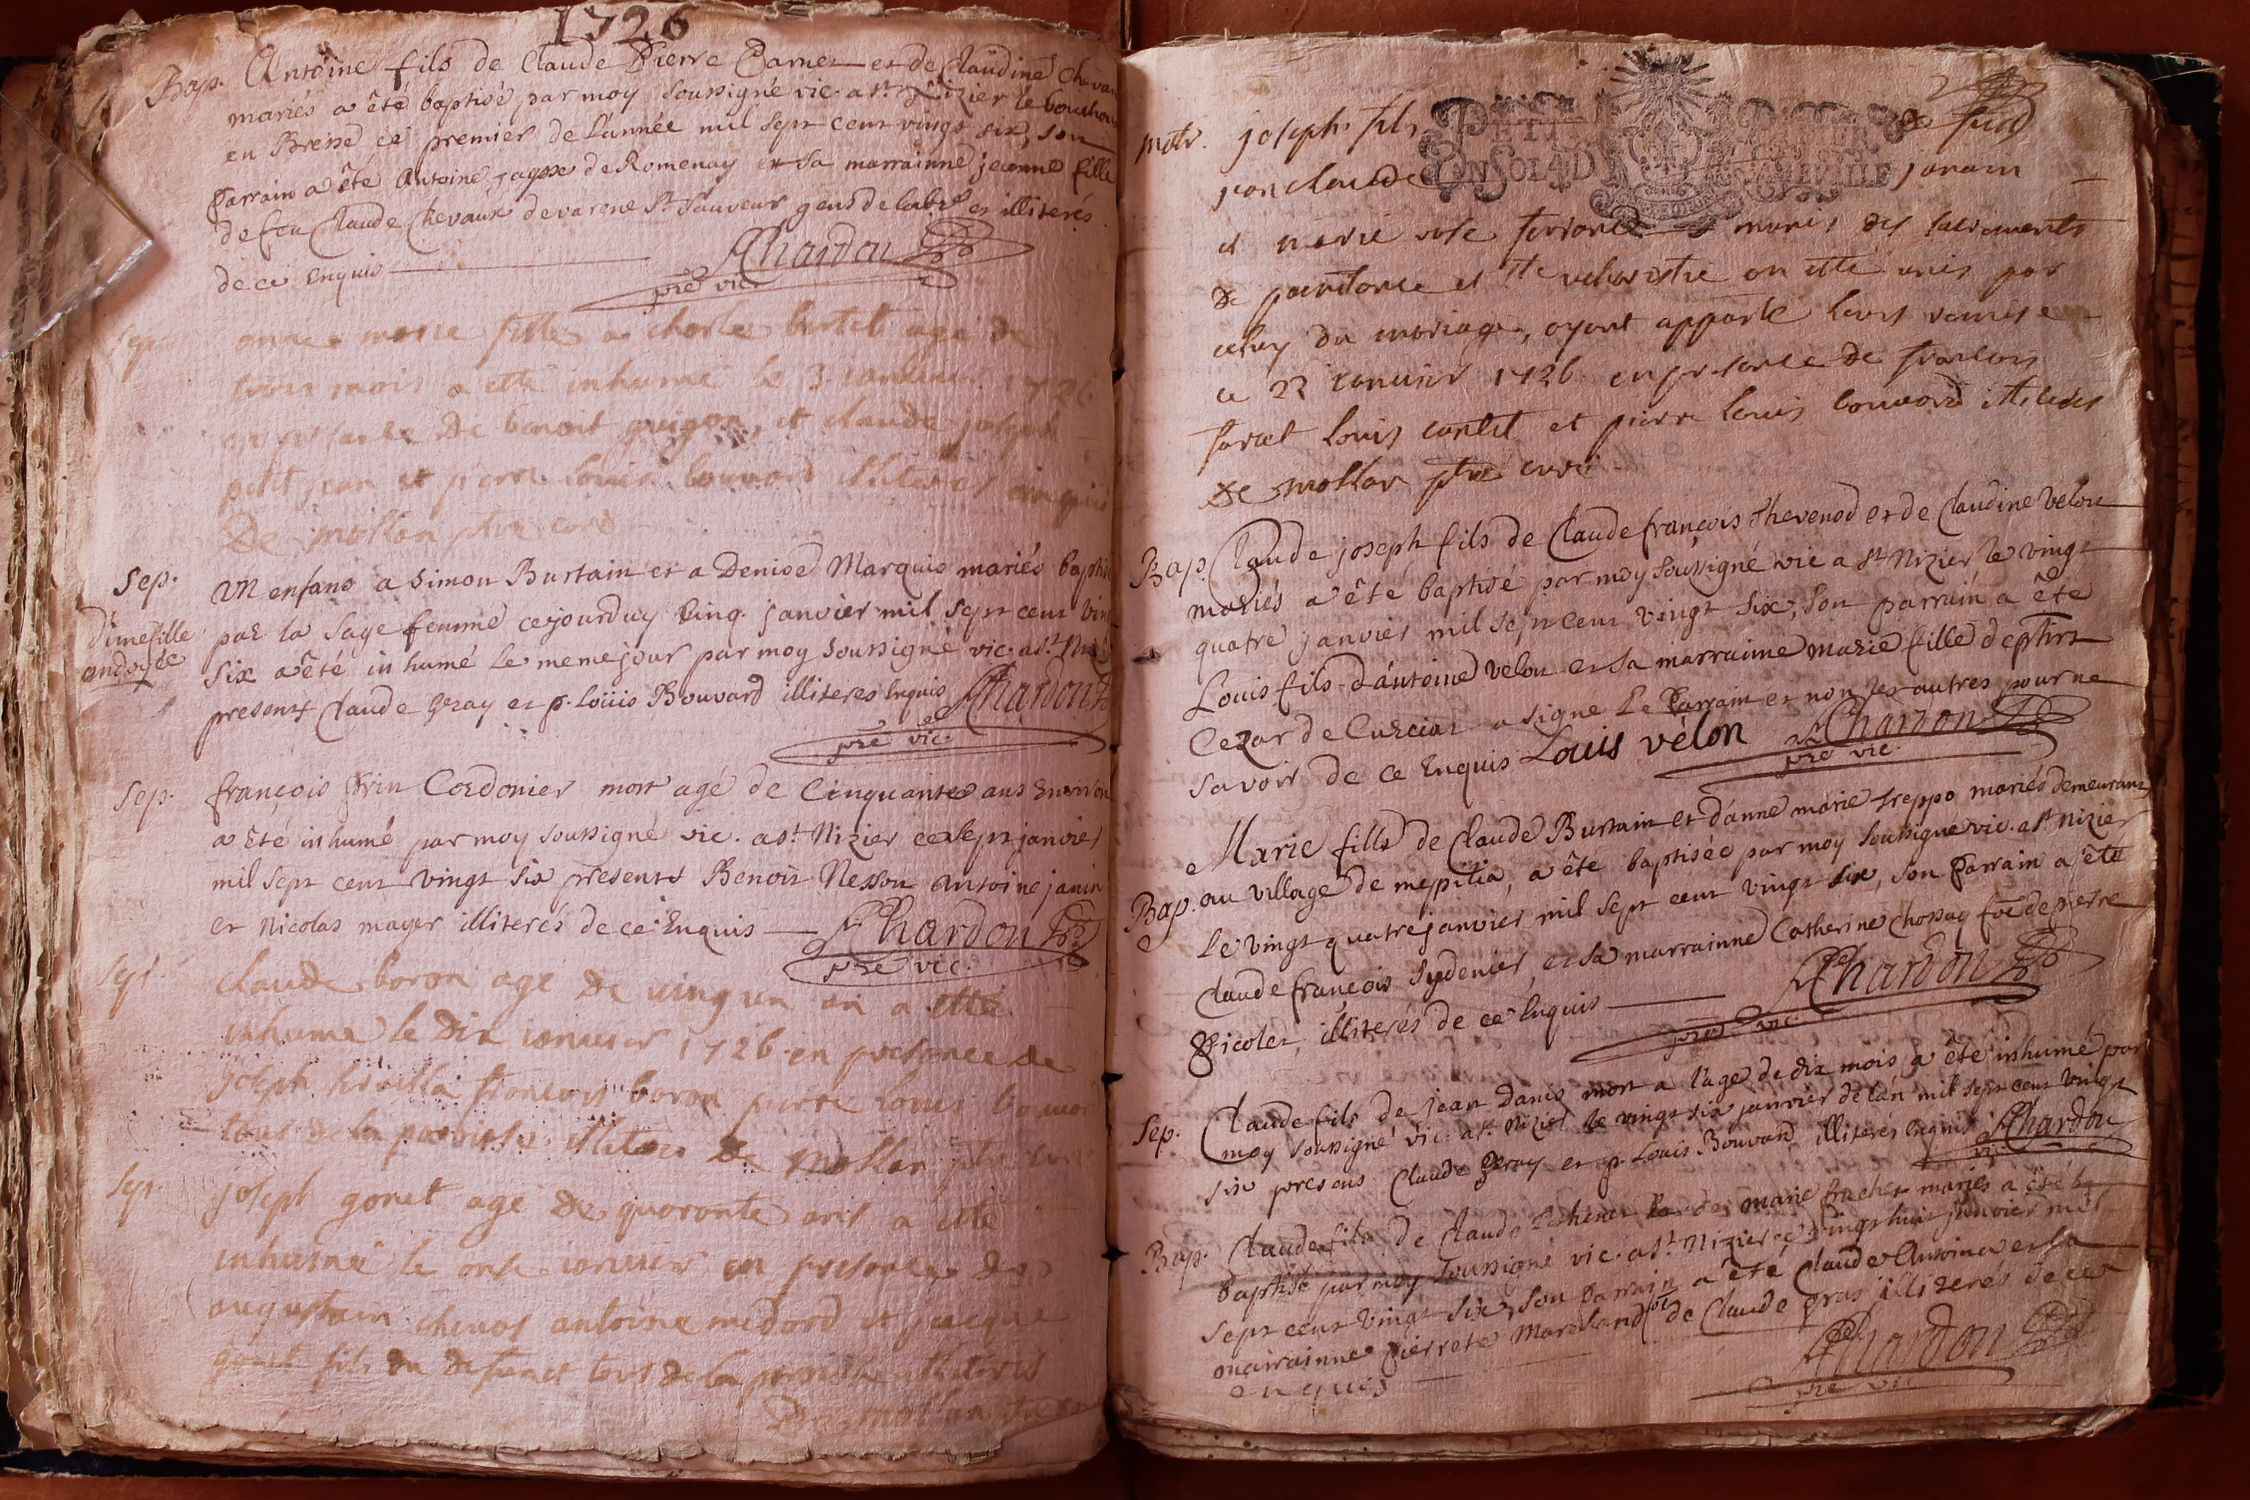 1726
Bap. Antoine fils de Claude Pierre Carnet et de Claudine Chevau
mariés a été baptisé par moy soussigné vic. a st. Nizier le bouchou
en Bresse ce premier de l'année mil sept cent vingt six, son
parrain a été Antoine de Romenay et sa marrainne jeanne fille
de feu Claude Chevaux de varene st Sauveur gens de labr et illiterés
de ce Enquis Chardon
pre vic.
Sep. anne marie fille a charle bertet agé de
trois mois a etté inhume le 3 ianuier 1726
en presance de benoit guigon, et claude joseph
petit jean et pierre louis bouvard illiteres enquis
De mollan ptre curé
Sep. Un enfans a Simon Burtain et a Denise Marquis mariés baptisé
d'une fille par la sage femme cejourduy Cinq. janvier mil sept cent vin
ondoyée six a été inhumé le meme jour par moy soussigné vic. a st. Niz
presents Claude geray et p. Loüis Bouvard illiteres Enquis Chardon
pre vic.
Sep. françois prin Cordonier mort agé de Cinquante ans Environ
a été inhumé par moy soussigné vic. a st. Nizier ce sept janvier
mil sept cent vingt six présents Benoit Nesson antoine janin
et Nicolas mayer illiterés de ce Enquis Chardon
pre vic.
Sep. claude boron agé De uing un an a etté
inhume le Dix ianuier 1726 en presance de
joseph françois boron pierre louis bouvar
tous de la parroisse illiteres De mollan ptre curé
Sep. joseph gonet age De quoronte ans a etté
inhumé le onse ianuier en presance De
augustain chenos antoine medord et jacque
gonet fils du Defunct tous de la parroisse illiterés
De mollan ptre cu
Mtr. joseph fils de feu
jean claude janain
et marie munis des sacrements
De penitance et ste euharistie on etté unis par
celuy du mariage, ayant apporté leurs remise
ce 22 ianuier 1726 en presance De francois
louis cartet et pierre louis bouvard illiterés
De mollan ptre curé
Bap. Claude joseph fils de Claude françois Thevenod et de Claudine Velon
mariés a été baptisé par moy soussigné vic a st Nizier le vingt
quatre janvier mil sept cent vingt six, son parrain a été
Louis fils d'antoine velon et sa marrainne marie fille de
Cezar de Curciat a signé le Parrain et non les autres pour ne
savoir de ce Enquis Louis vélon Chardon
pre vic.
Marie fille de Claude Burtain et d'anne marie treppo mariés demeurant
Bap. au village de mepilia, a été baptisée par moy soussigné vic. a st Nizier
le vingt quatre janvier mil sept cent vingt six, son parrain a été
Claude françois Sydenier, et sa marrainne Catherine Chossag fe de pierre
Nicolet, illiterés de ce Enquis Chardon
pre vic.
Sep. Claude fils de jean Danis mort a l'age de dix mois a été inhumé par
moy soussigné vic. a st. Nizier le vingt six janvier de l'an mil sept cent vingt
six presens Claude geray et p. Louis Bouvard illiterés Enquis Chardon
Bap. Claude fils de Claude et de marie frachet mariés a été b
baptisé par moy soussigné vic. a st. Nizier ce vingt huit janvier mil
sept cent vingt six, son Parrain a été Claude Antoine et sa
marrainne pierrete Marchand de Claude gras illiterés de ce
enquis Chardon
pre vic.